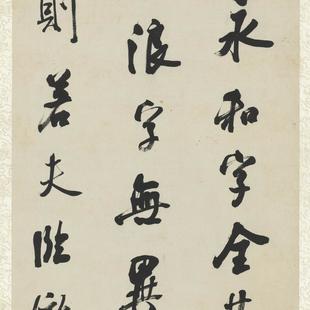 永和字全其
浪字無異
則若夫臨